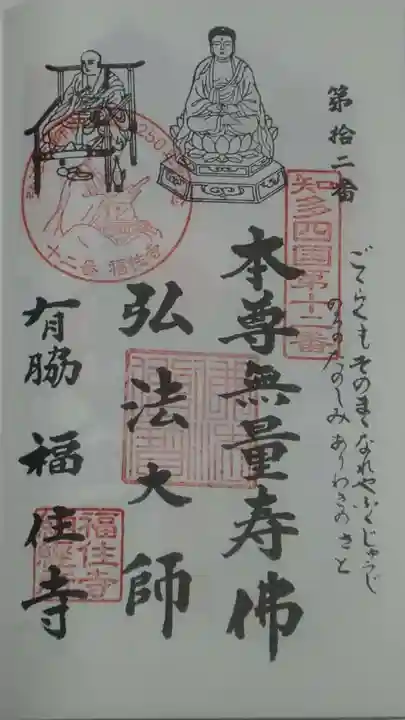 第拾二番
知多四国第十二番
ごくらくも そのまゝなれや ふくじゅうじ
のりのたのしみ ありわきの さと
本尊無量寿佛
弘法大師
有脇 福住寺
十二番 福住寺
福住寺